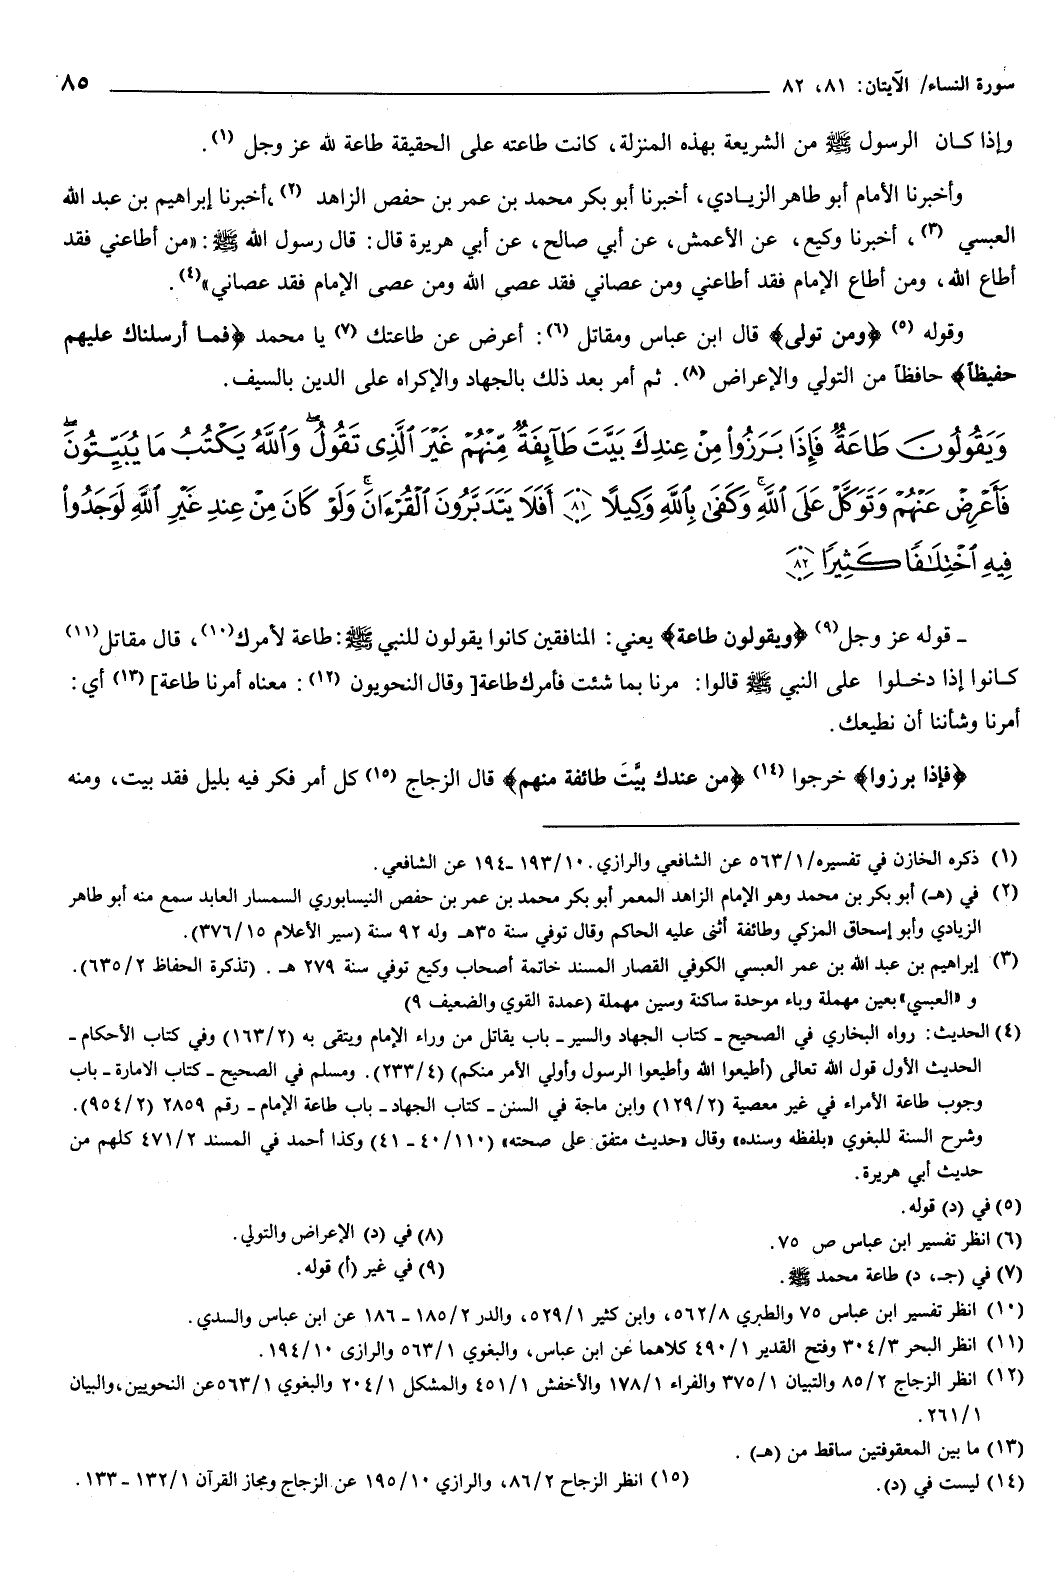 سورة النساء/ الآيتان: ٨١، ٨٢ ٨٥
وإذا كان الرسول ﷺ من الشريعة بهذه المنزلة، كانت طاعته على الحقيقة طاعة لله عز وجل (١).
وأخبرنا الأمام أبو طاهر الزيادي، أخبرنا أبو بكر محمد بن عمر بن حفص الزاهد (٢)، أخبرنا إبراهيم بن عبد الله
العبسي (٣)، أخبرنا وكيع، عن الأعمش، عن أبي صالح، عن أبي هريرة قال: قال رسول الله ﷺ: «من أطاعني فقد
أطاع الله، ومن أطاع الإمام فقد أطاعني ومن عصاني فقد عصى الله ومن عصى الإمام فقد عصاني»(٤).
وقوله (٥) ﴿ومن تولى﴾ قال ابن عباس ومقاتل (٦): أعرض عن طاعتك (٧) يا محمد ﴿فما أرسلناك عليهم
حفيظاً﴾ حافظاً من التولي والإعراض (٨). ثم أمر بعد ذلك بالجهاد والإكراه على الدين بالسيف.
وَيَقُولُونَ طَاعَةٌ فَإِذَا بَرَزُوا۟ مِنْ عِندِكَ بَيَّتَ طَآئِفَةٌ مِّنْهُمْ غَيْرَ ٱلَّذِى تَقُولُ ۖ وَٱللَّهُ يَكْتُبُ مَا يُبَيِّتُونَ ۖ
فَأَعْرِضْ عَنْهُمْ وَتَوَكَّلْ عَلَى ٱللَّهِ ۚ وَكَفَىٰ بِٱللَّهِ وَكِيلًا ٨١ أَفَلَا يَتَدَبَّرُونَ ٱلْقُرْءَانَ ۚ وَلَوْ كَانَ مِنْ عِندِ غَيْرِ ٱللَّهِ لَوَجَدُوا۟
فِيهِ ٱخْتِلَٰفًا كَثِيرًا ٨٢
ـ قوله عز وجل(٩) ﴿ويقولون طاعة﴾ يعني: المنافقين كانوا يقولون للنبي ﷺ: طاعة لأمرك(١٠)، قال مقاتل(١١)
كانوا إذا دخلوا على النبي ﷺ قالوا: مرنا بما شئت فأمرك طاعة[ وقال النحويون (١٢): معناه أمرنا طاعة](١٣) أي:
أمرنا وشأننا أن نطيعك.
﴿فإذا برزوا﴾ خرجوا (١٤) ﴿من عندك بيَّتَ طائفة منهم﴾ قال الزجاج (١٥) كل أمر فكر فيه بليل فقد بيت، ومنه
(١) ذكره الخازن في تفسيره/ ٥٦٣/١ عن الشافعي والرازي. ١٩٣/١٠ ـ ١٩٤ عن الشافعي.
(٢) في (هـ) أبو بكر بن محمد وهو الإمام الزاهد المعمر أبو بكر محمد بن عمر بن حفص النيسابوري السمسار العابد سمع منه أبو طاهر
الزيادي وأبو إسحاق المزكي وطائفة أثنى عليه الحاكم وقال توفي سنة ٣٥هـ وله ٩٢ سنة (سير الأعلام ٣٧٦/١٥).
(٣) إبراهيم بن عبد الله بن عمر العبسي الكوفي القصار المسند خاتمة أصحاب وكيع توفي سنة ٢٧٩ هـ. (تذكرة الحفاظ ٦٣٥/٢).
و «العبسي» بعين مهملة وباء موحدة ساكنة وسين مهملة (عمدة القوي والضعيف ٩)
(٤) الحديث: رواه البخاري في الصحيح ـ كتاب الجهاد والسير ـ باب يقاتل من وراء الإمام ويتقى به (١٦٣/٢) وفي كتاب الأحكام ـ
الحديث الأول قول الله تعالى (أطيعوا الله وأطيعوا الرسول وأولي الأمر منكم) (٢٣٣/٤). ومسلم في الصحيح ـ كتاب الامارة ـ باب
وجوب طاعة الأمراء في غير معصية (١٢٩/٢) وابن ماجة في السنن ـ كتاب الجهاد ـ باب طاعة الإمام ـ رقم ٢٨٥٩ (٩٥٤/٢).
وشرح السنة للبغوي «بلفظه وسنده» وقال «حديث متفق على صحته» (٤٠/١١٠ ـ ٤١) وكذا أحمد في المسند ٤٧١/٢ كلهم من
حديث أبي هريرة.
(٥) في (د) قوله.
(٦) انظر تفسير ابن عباس ص ٧٥.
(٧) في (جـ، د) طاعة محمد ﷺ.
(٨) في (د) الإعراض والتولي.
(٩) في غير (أ) قوله.
(١٠) انظر تفسير ابن عباس ٧٥ والطبري ٥٦٢/٨، وابن كثير ٥٢٩/١، والدر ١٨٥/٢ ـ ١٨٦ عن ابن عباس والسدي.
(١١) انظر البحر ٣٠٤/٣ وفتح القدير ٤٩٠/١ كلاهما عن ابن عباس، والبغوي ٥٦٣/١ والرازى ١٩٤/١٠.
(١٢) انظر الزجاج ٨٥/٢ والتبيان ٣٧٥/١ والفراء ١٧٨/١ والأخفش ٤٥١/١ والمشكل ٢٠٤/١ والبغوي ٥٦٣/١عن النحويين، والبيان
٢٦١/١.
(١٣) ما بين المعقوفتين ساقط من (هـ).
(١٤) ليست في (د).
(١٥) انظر الزجاح ٨٦/٢، والرازي ١٩٥/١٠ عن الزجاج ومجاز القرآن ١٣٢/١ ـ ١٣٣.